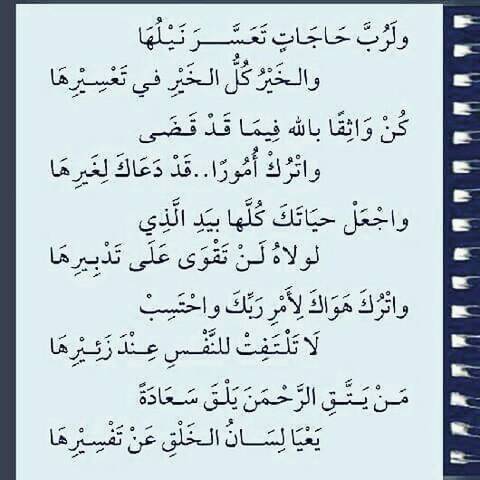 ولَرُبَّ حَاجَاتٍ تَعَسَّـــــرَ نَيْلُهَا
والـخَيْرُ كُلُّ الـخَيْرِ في تَعْسِيْرِهَا
كُنْ وَاثِقًا بالله فِيمَا قَدْ قَضَى
واتْرُكْ أُمُورًا..قَدْ دَعَاكَ لِغَيرِهَا
واجْعَلْ حيَاتَكَ كُلَّها بيَدِ الَّذِي
لولاهُ لَـنْ تَقْوَى عَلَى تَدْبِيرِهَا
واتْرُكَ هَوَاكَ لِأَمْرِ رَبِّكَ واحْتَسِبْ
لَا تَلْتَفِتْ للنَّفْـسِ عِنْدَ زَئِيْرِهَا
مَـنْ يَـتَّـقِ الرَّحْمَنَ يَلْقَ سَـعَادَةً
يَعْيَا لِسَــانُ الـخَلْقِ عَنْ تَفْسِيْرِهَا